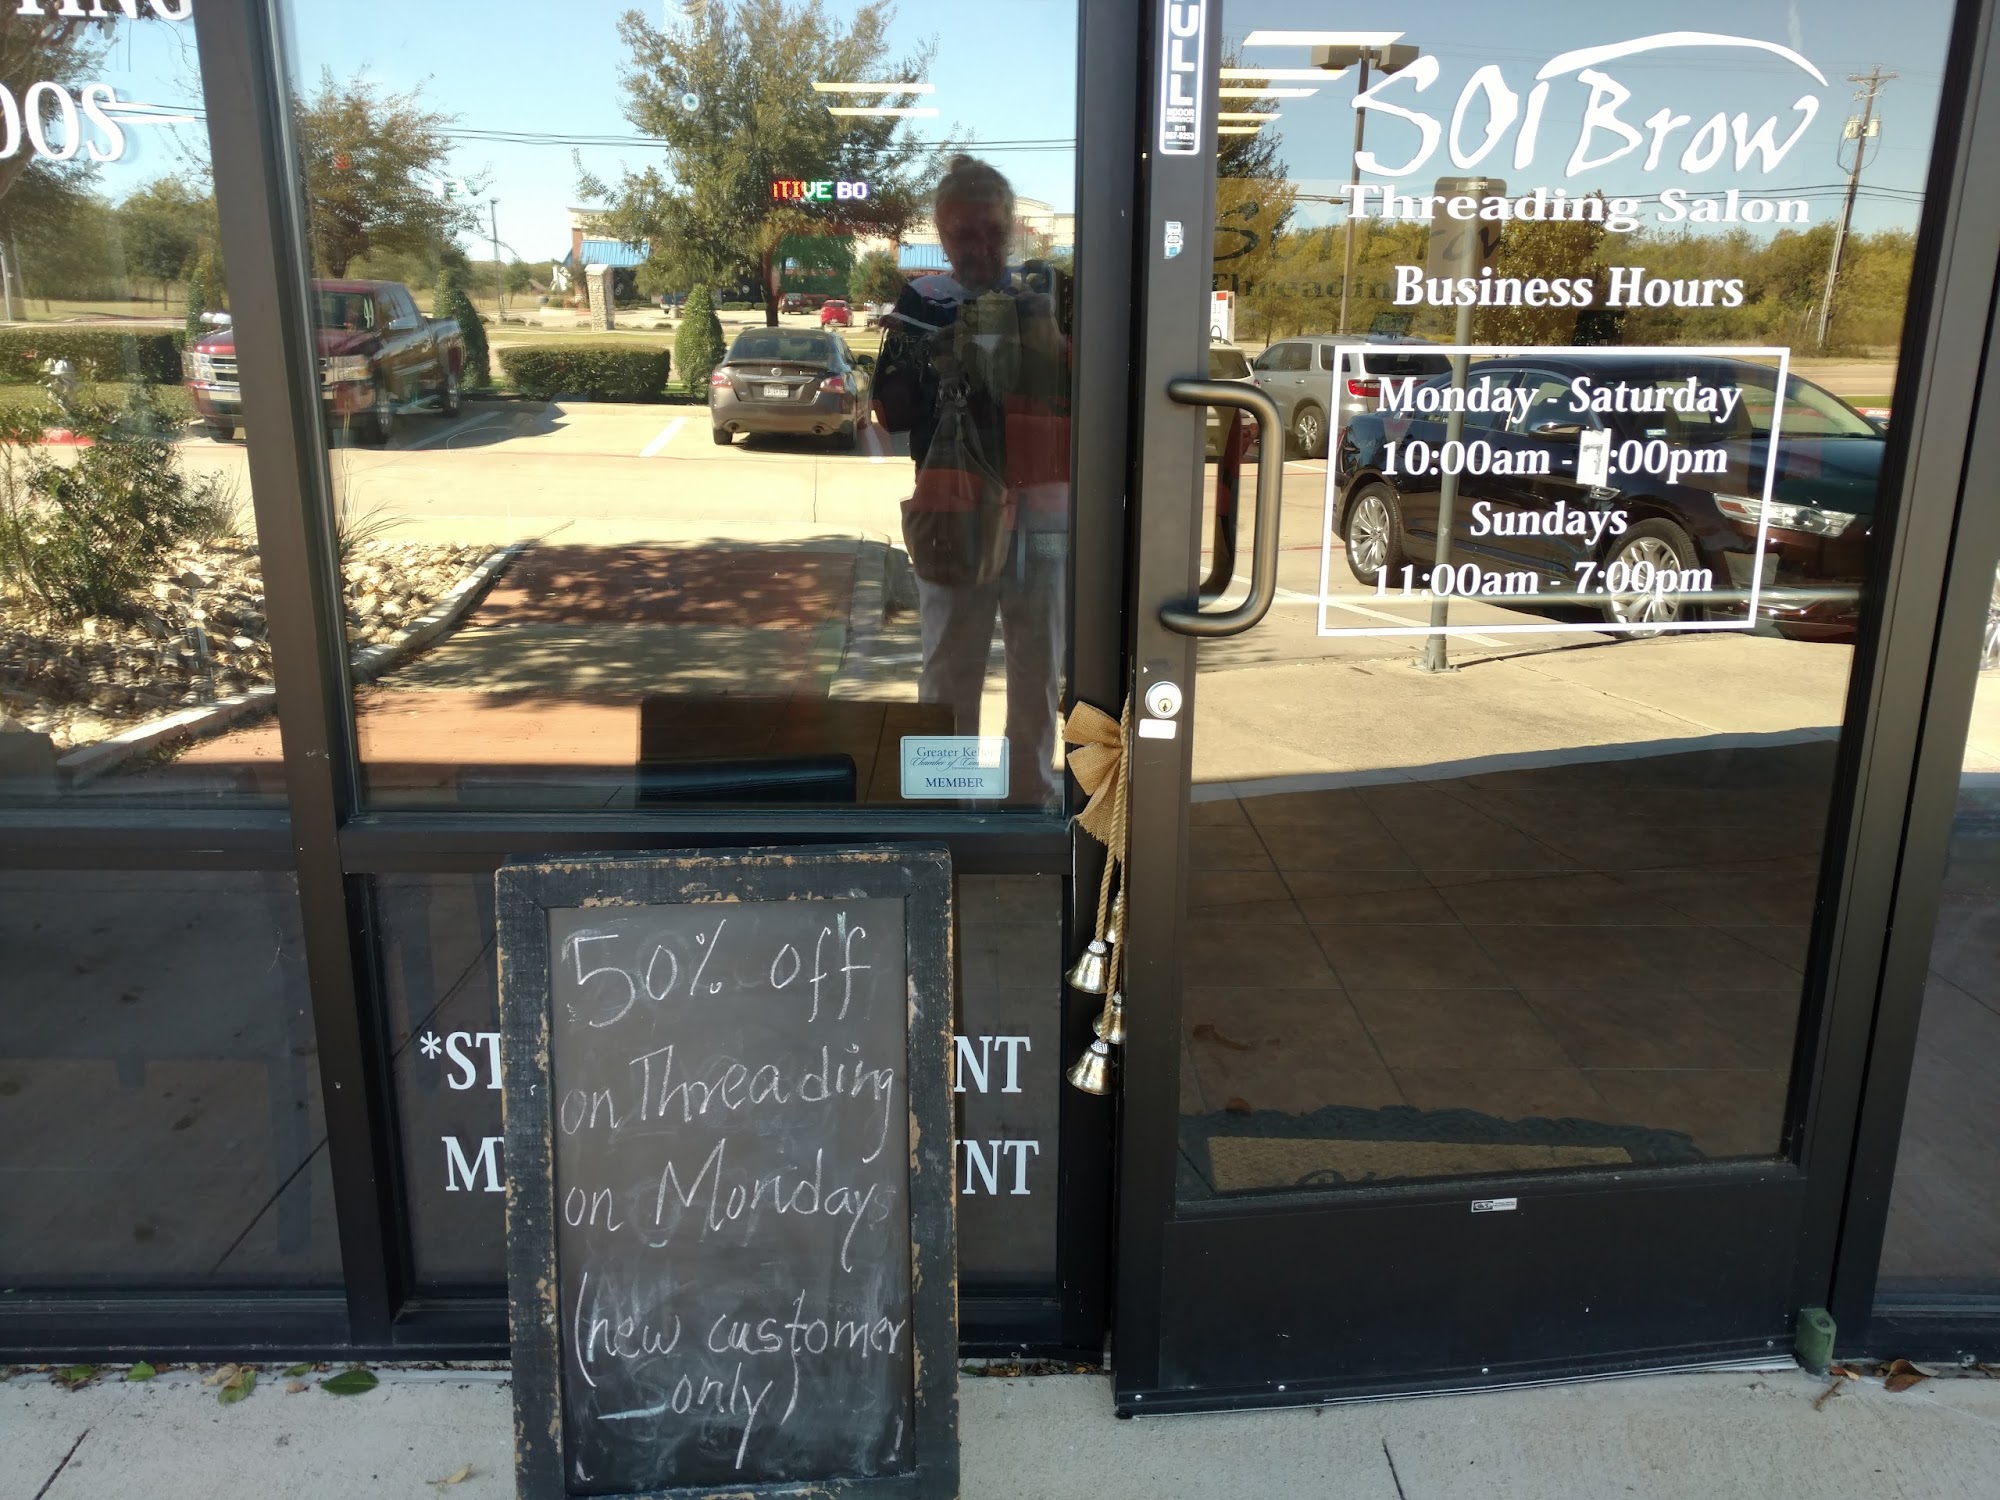 OOS
PULL
SOI Brow
Threading Salon
Business Hours
Monday - Saturday
10:00am - 7:00pm
Sundays
11:00am - 7:00pm
TIVE BO
Greater Keller
Chamber of
MEMBER
50% off
on Threading
on Mondays
(new customer
only)
*ST NT
M NT